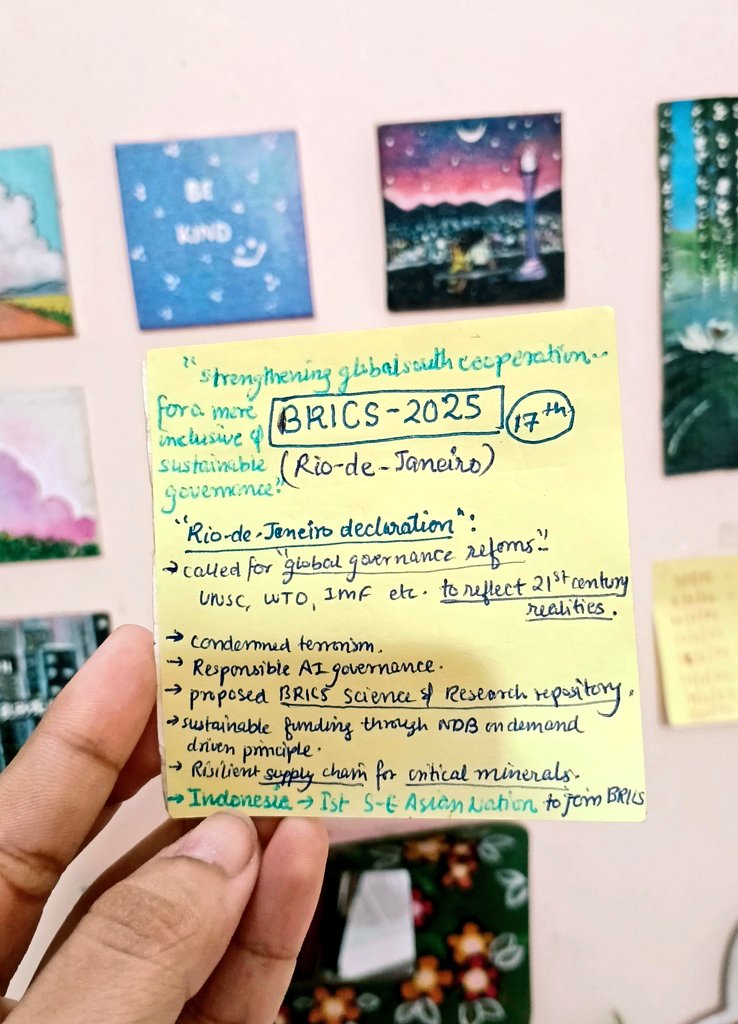 BE
KIND
"strengthening global south cooperation..
for a more
inclusive &
sustainable
governance."
BRICS-2025
17th
(Rio-de-Janeiro)
"Rio-de-Janeiro declaration":
→ called for "global governance reforms"
UNSC, WTO, IMF etc. to reflect 21st century
realities.
→ Condemned terrorism.
→ Responsible AI governance.
→ proposed BRICS Science & Research repository.
→ sustainable funding through NDB on demand
driven principle.
→ Risilient supply chain for critical minerals.
→ Indonesia → Ist S-E Asian Nation to join BRICS